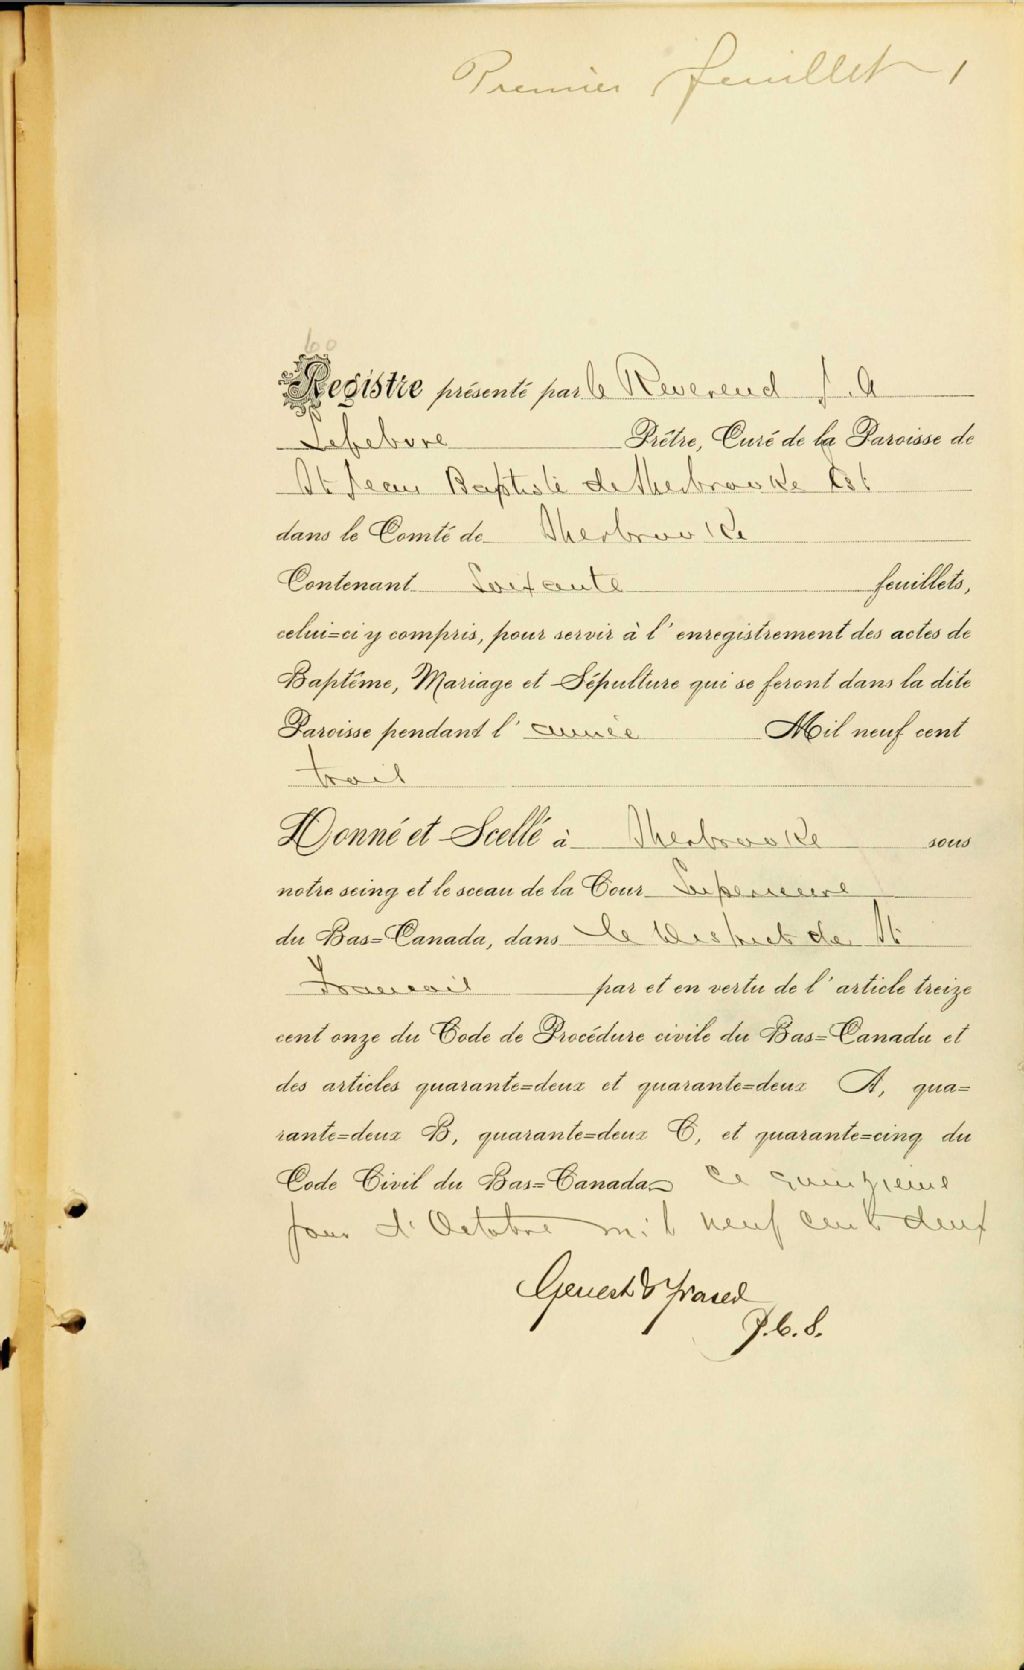 Premier feuillet 1
60
Registre présenté par le Reverend J. A
Lefebvre Prêtre, Curé de la Paroisse de
St Jean Baptiste de Sherbrooke Est
dans le Comté de Sherbrooke
Contenant Soixante feuillets,
celui=ci y compris, pour servir à l'enregistrement des actes de
Baptême, Mariage et Sépulture qui se feront dans la dite
Paroisse pendant l'année Mil neuf cent
trois
Donné et Scellé à Sherbrooke sous
notre seing et le sceau de la Cour Superieure
du Bas=Canada, dans le District de St
Francois par et en vertu de l'article treize
cent onze du Code de Procédure civile du Bas=Canada et
des articles quarante=deux et quarante=deux A, qua=
rante=deux B, quarante=deux C, et quarante=cinq du
Code Civil du Bas=Canada ce quinzieme
jour d'Octobre mil neuf cent deux
Genest &
P. C. S.